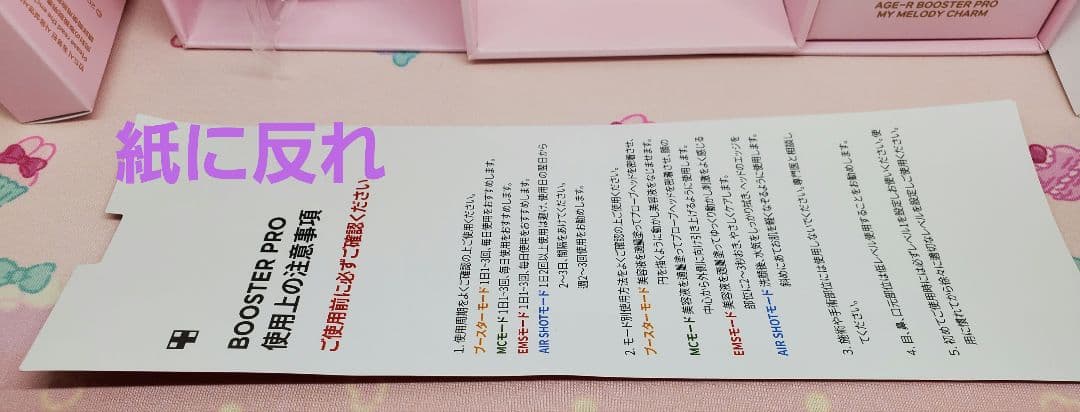 紙に反れ
AGE-R BOOSTER PRO
MY MELODY CHARM
BOOSTER PRO
使用上の注意事項
ご使用前に必ずご確認ください
1. 使用周期をよくご確認の上ご使用ください。
ブースターモード 1日1~3回、毎日使用をおすすめします。
MCモード 1日1~3回、毎日使用をおすすめします。
EMSモード 1日1~3回、毎日使用をおすすめします。
AIR SHOTモード 1日2回以上使用は避け、使用日の翌日から
2~3日、間隔をあけてください。
週2~3回使用をお勧めします。
2. モード別使用方法をよくご確認の上ご使用ください。
ブースターモード 美容液を適量塗ってプローブヘッドを密着させ、
円を描くように動かし美容液をなじませます。
MCモード 美容液を適量塗ってプローブヘッドを密着させ、顔の
中心から外側に向け引き上げるように使用します。
EMSモード 美容液を適量塗ってゆっくり動かし刺激をよく感じる
部位に2~3秒おき、やさしくケアします。
AIR SHOTモード 洗顔後、水気をしっかり拭き、ヘッドのエッジを
斜めにあてお肌を軽くなぞるように使用します。
3. 施術や手術部位には使用しないでください。専門医と相談し
てください。
4. 目、鼻、口元部位は低レベル使用することをお勧めします。
5. 初めてご使用時には必ずレベル1を設定しお使いください。使
用に慣れてから徐々に適切なレベルを設定しご使用ください。